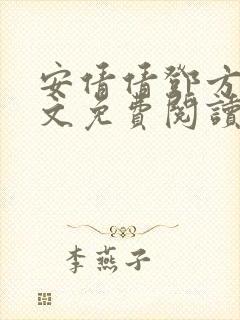 安倩倩鄧方
文免費閱讀
李燕子